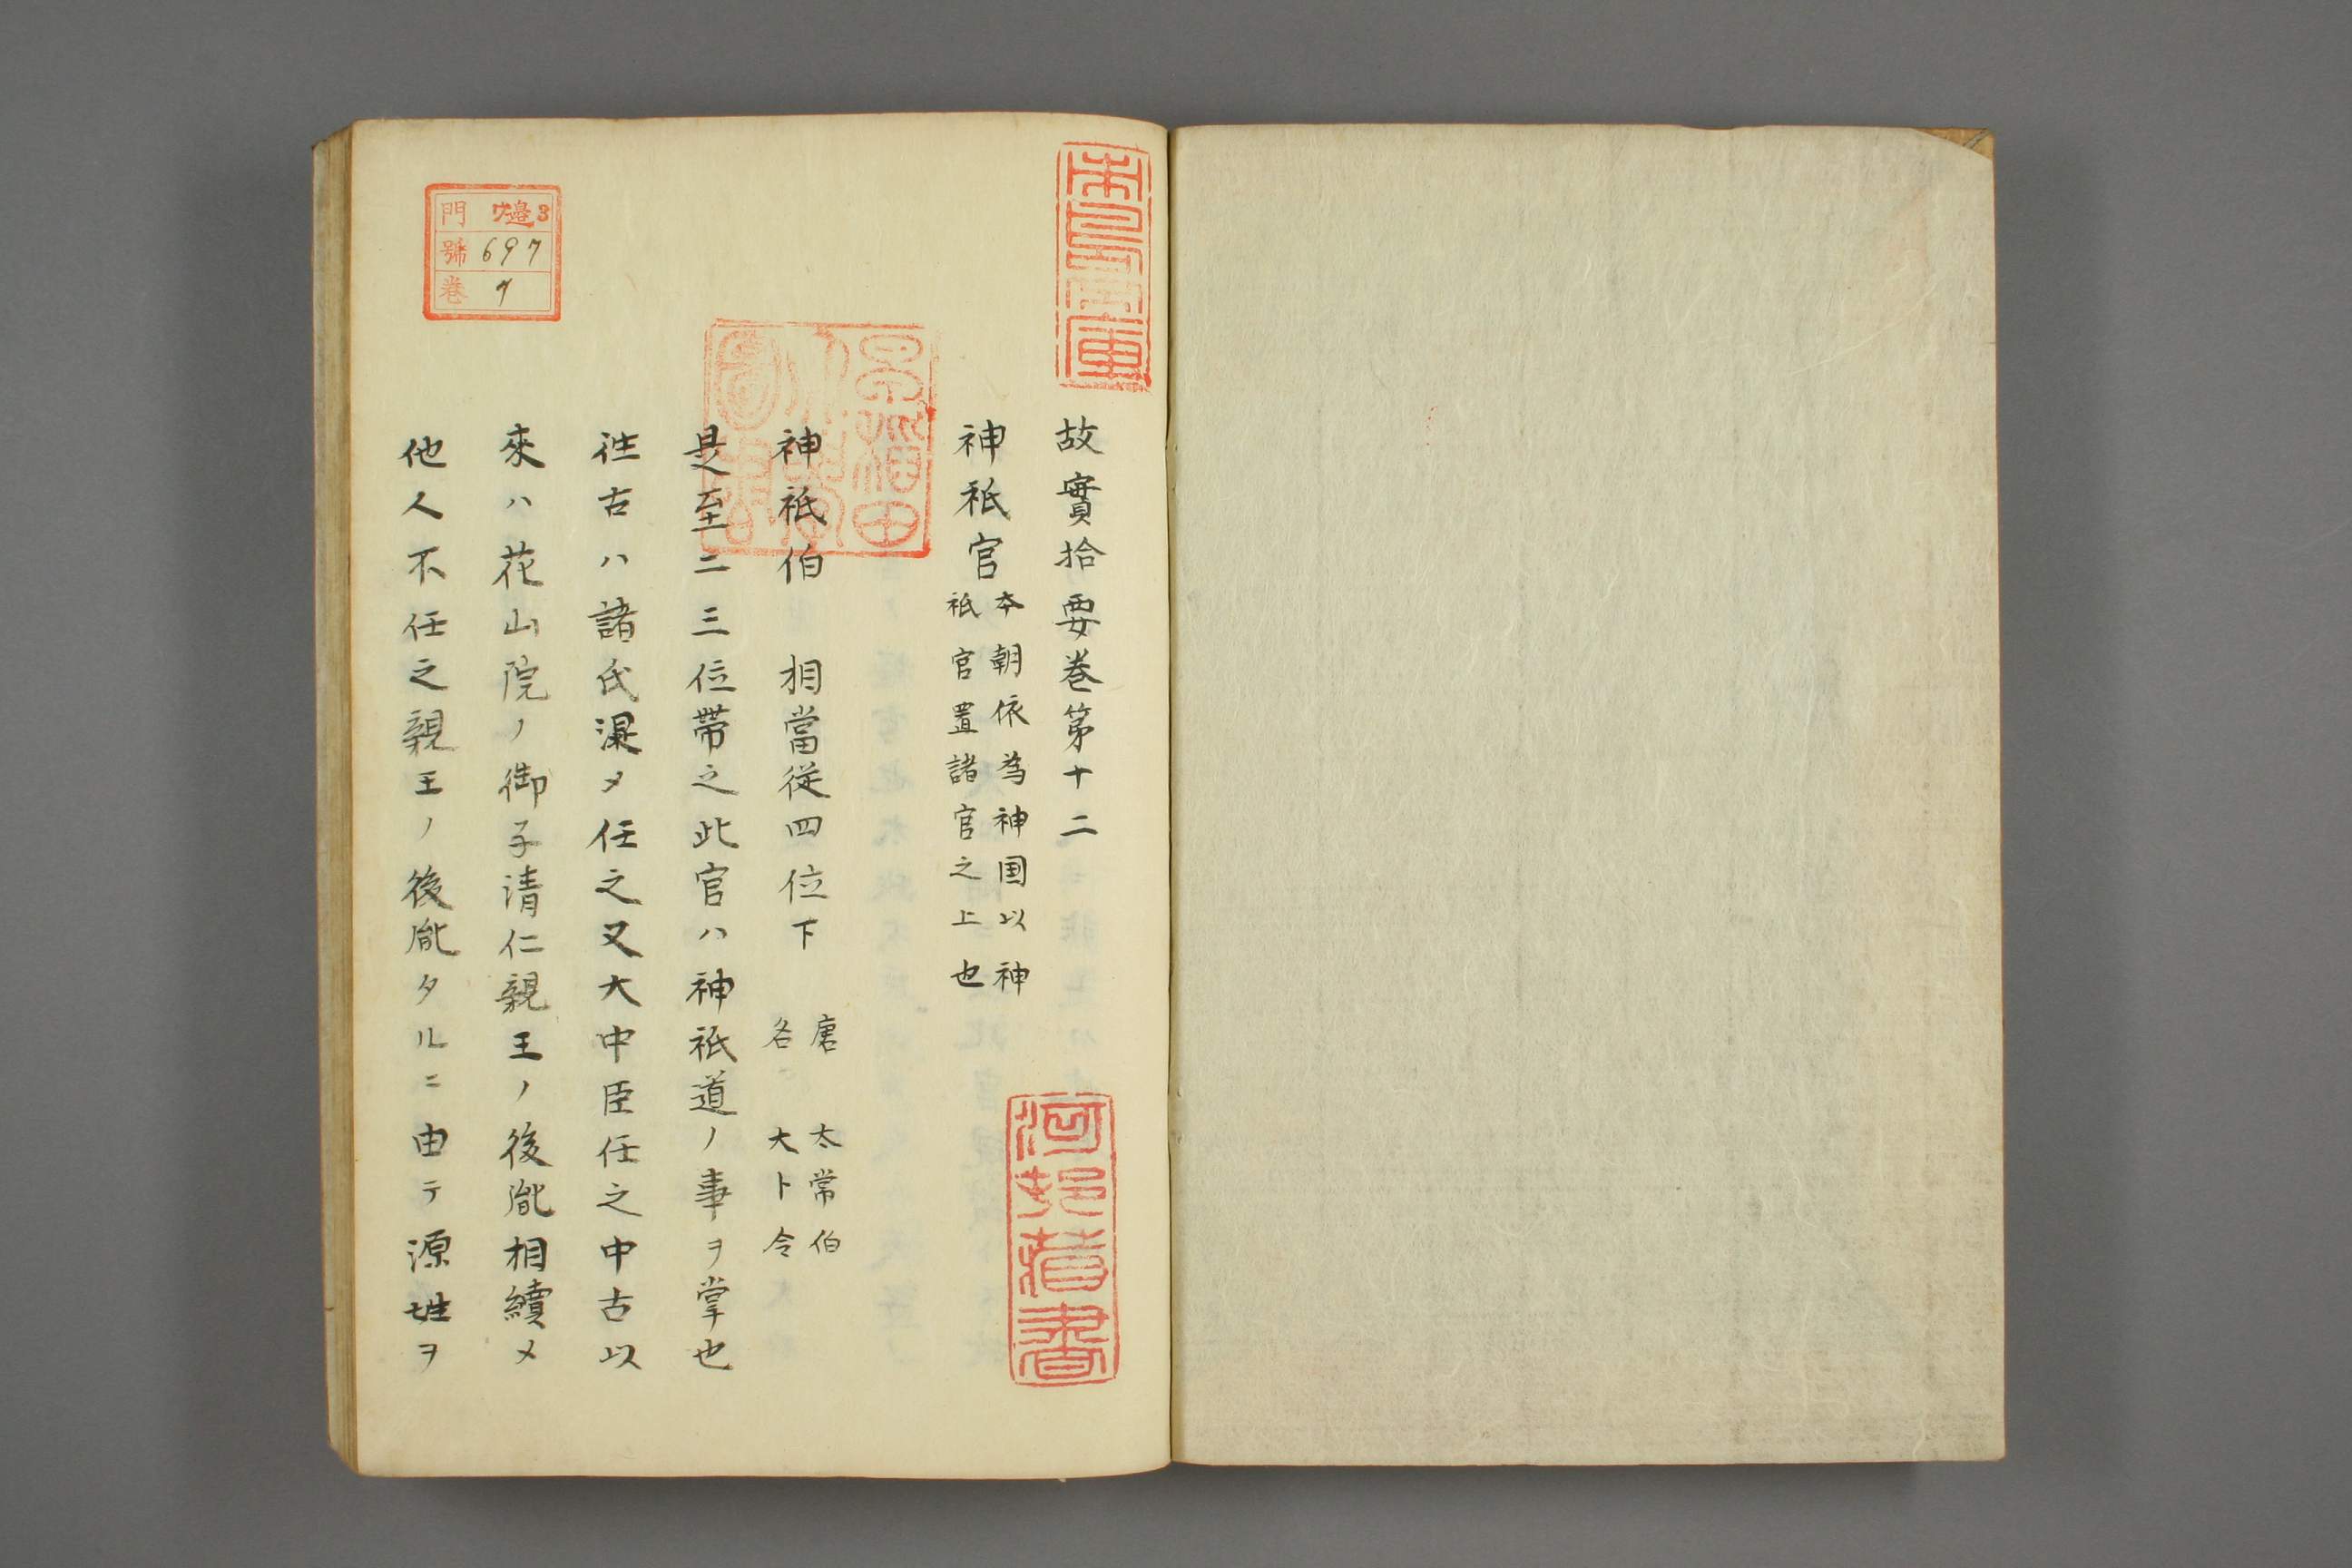 故實拾要巻第十二
神祇官 本朝依為神国以神
祇官置諸官之上也
神祇伯 相當従四位下 唐 太常伯
各〻 大卜令
是至二三位帯之此官ハ神祇道ノ事ヲ掌也
往古ハ諸氏混メ任之又大中臣任之中古以
來ハ花山院ノ御子清仁親王ノ後胤相續メ
他人不任之親王ノ後胤タルニ由テ源姓ヲ
門 ワ邉3
號 697
巻 7
河邨蔵書